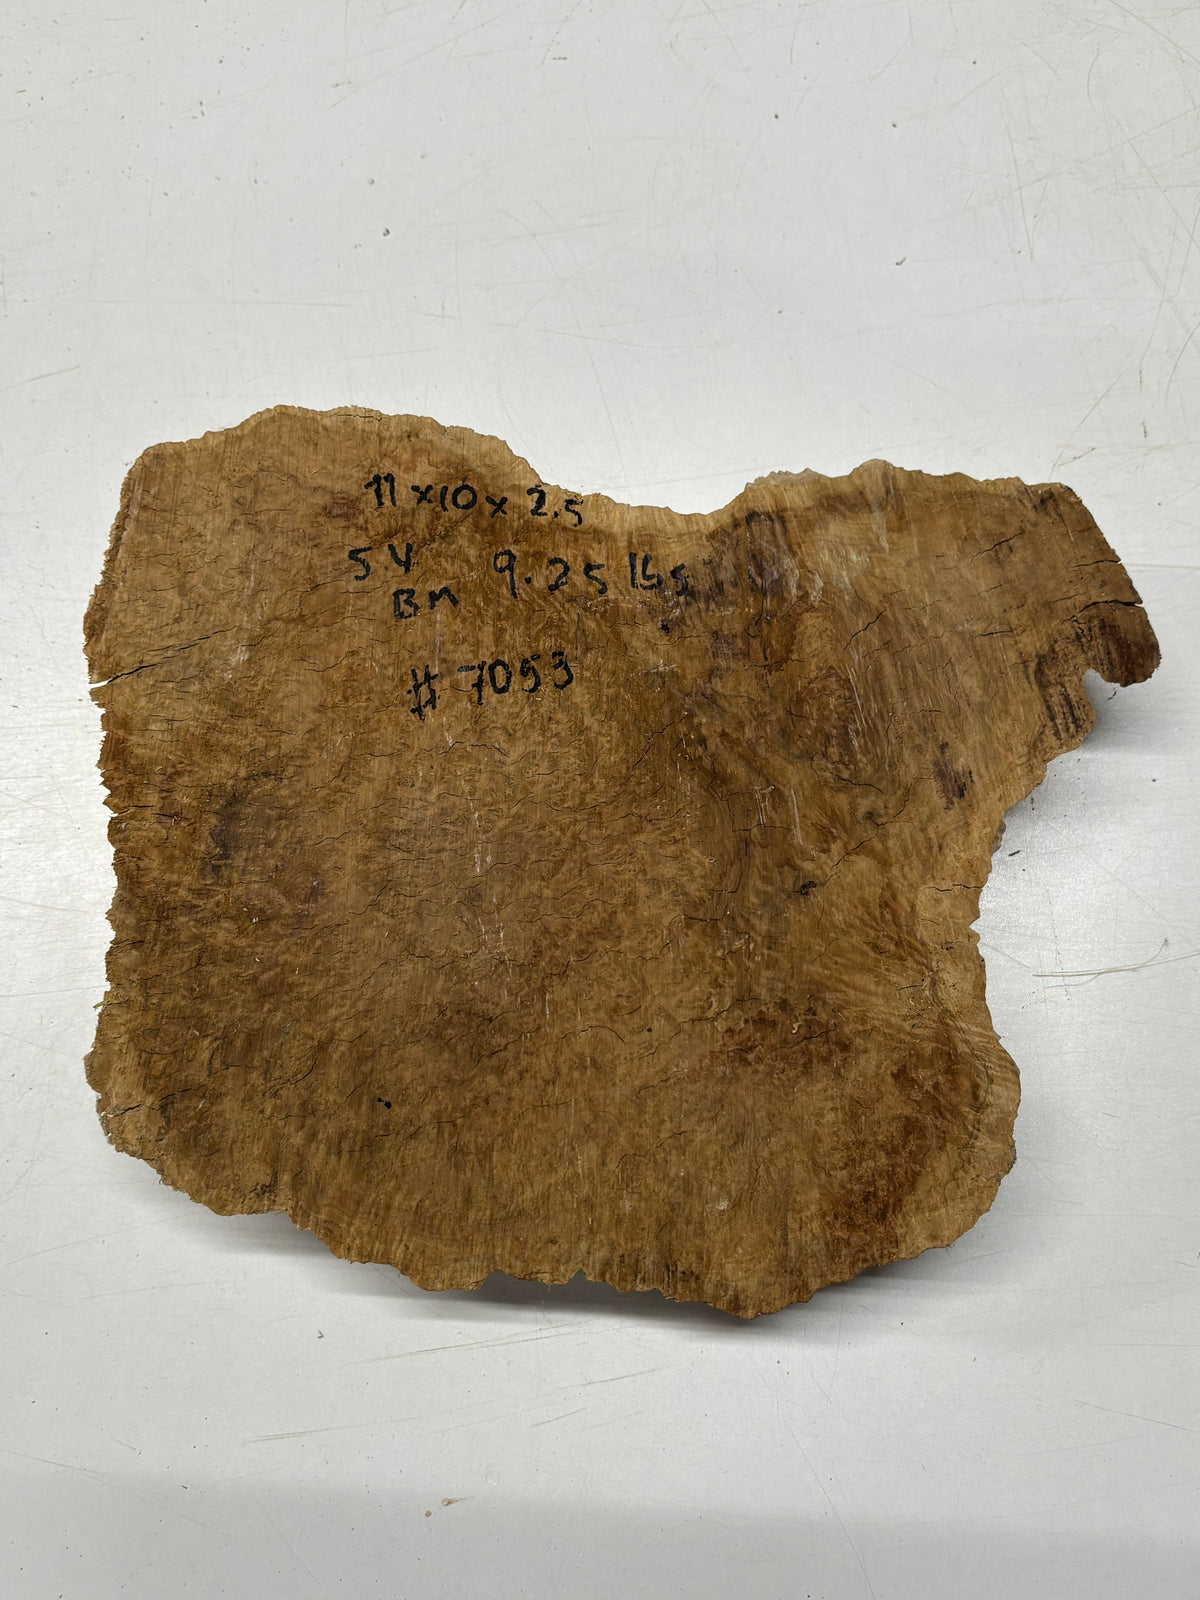 11x10x2.5
54 9.25 lbs
BM
#7053